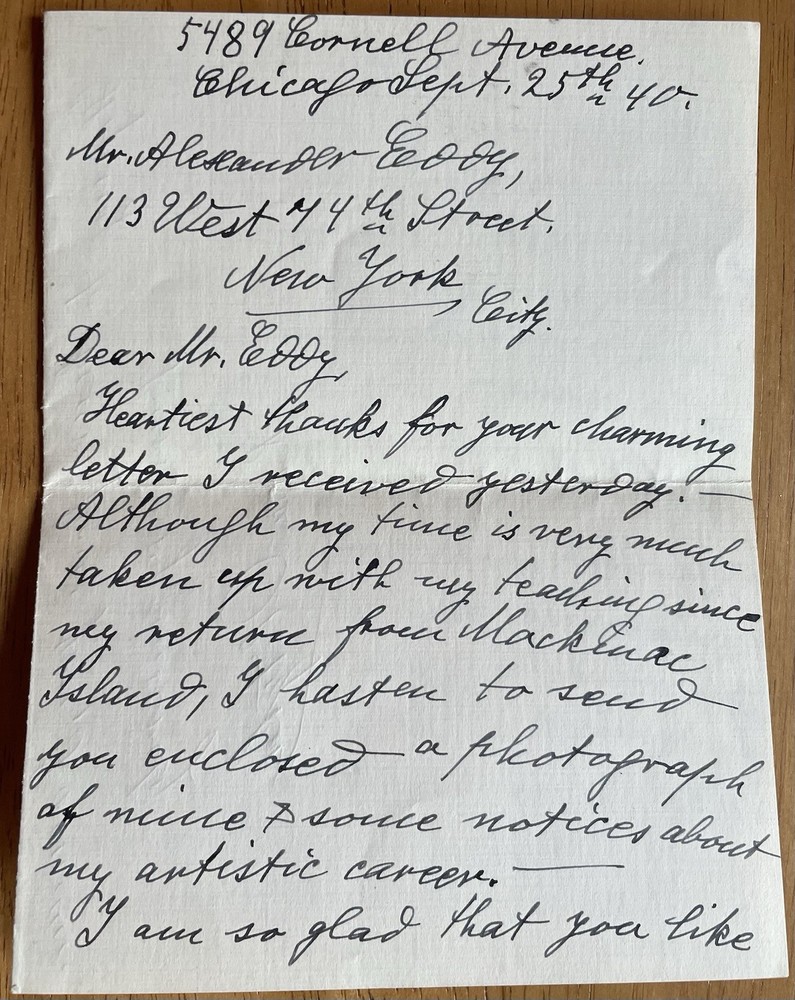 5489 Cornell Avenue.
Chicago Sept. 25th 40.
Mr. Alexander Eddy,
113 West 74th Street.
New York
City.
Dear Mr. Eddy,
Heartiest thanks for your charming
letter I received yesterday. —
Although my time is very much
taken up with my teaching since
my return from Mackinac
Island, I hasten to send
you enclosed a photograph
of mine & some notices about
my artistic career. —
I am so glad that you like